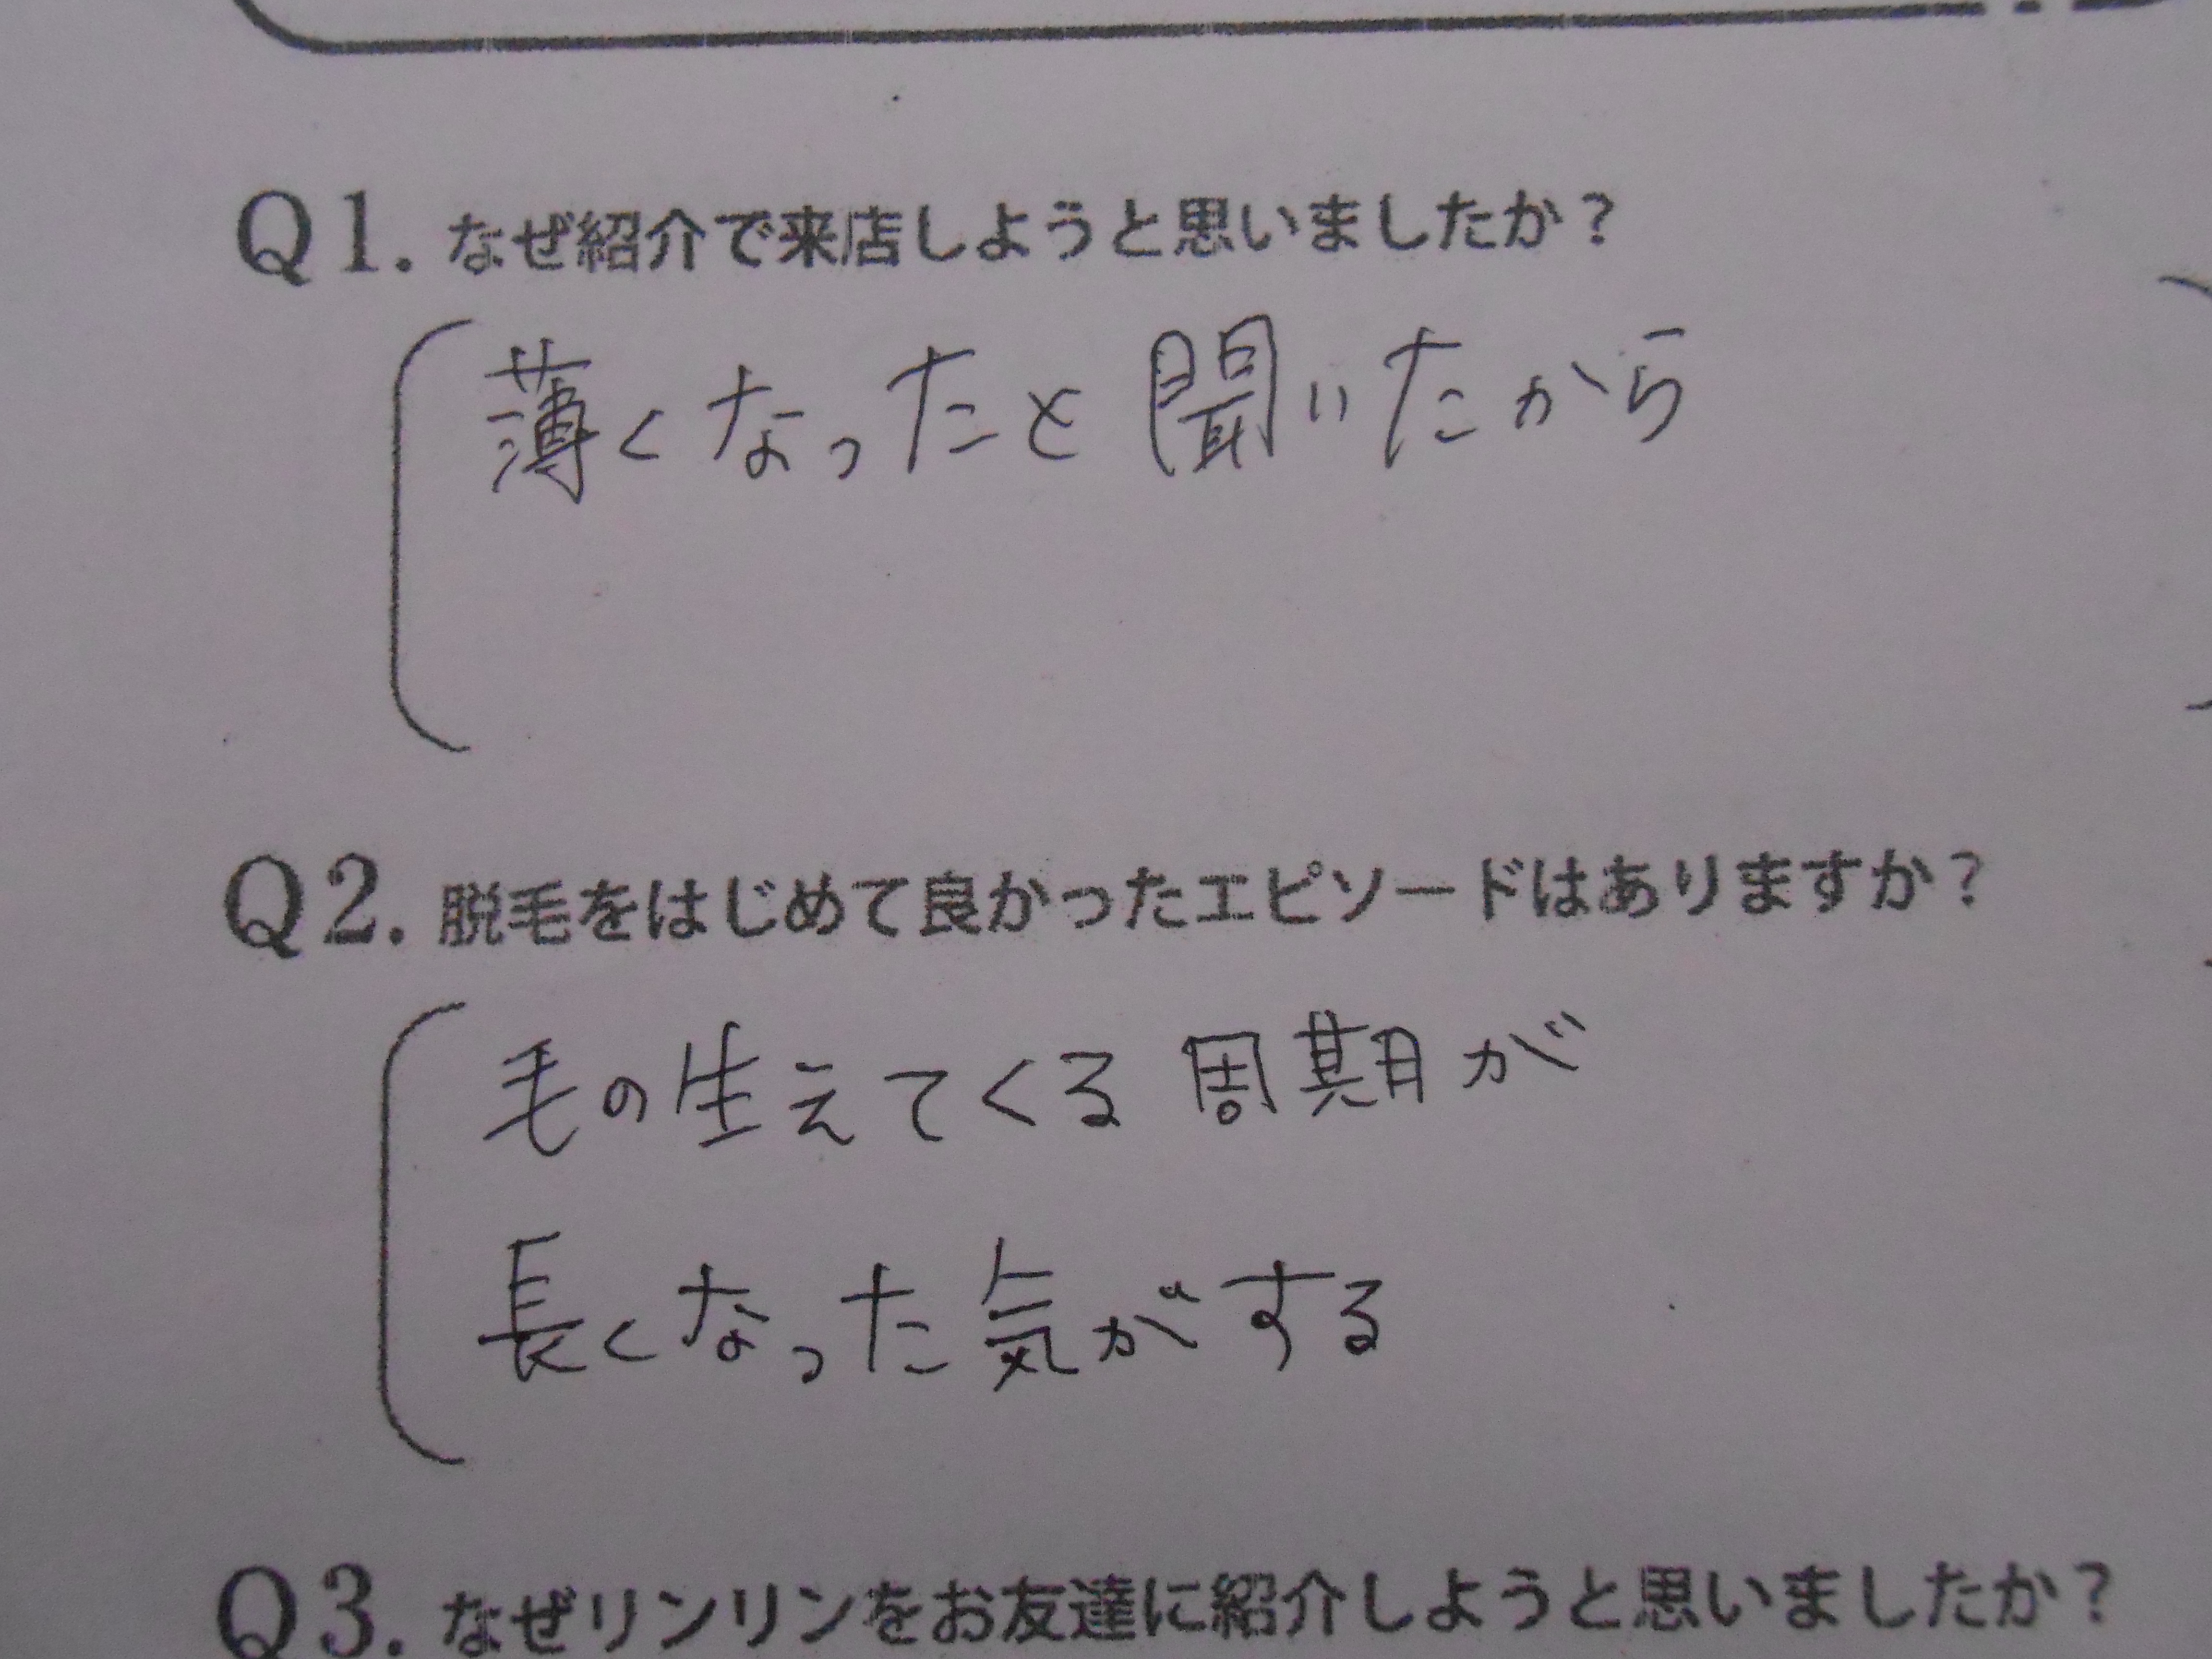 Q1. なぜ紹介で来店しようと思いましたか？
薄くなったと聞いたから
Q2. 脱毛をはじめて良かったエピソードはありますか？
毛の生えてくる周期が
長くなった気がする
Q3. なぜリンリンをお友達に紹介しようと思いましたか？